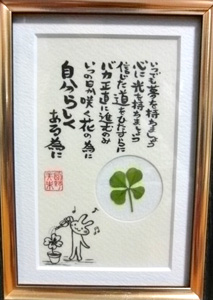 いつでも夢を持ちましょう
心に光を持ちましょう
信じた道をひたすらに
バカ正直に進むのみ
いつの日か咲く花の為に
自分らしく
ある為に